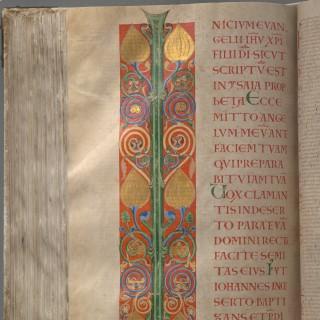 NICIUM EVAN
GELII IHV XPI
FILII DI SICVT
SCRIPTV EST
IN YSAIA PROP
BETA ECCE
MITTO ANGE
LVM MEV ANT
FACIEM TVAM
QVI PREPARA
BIT VIAM TVA
VOX CLAMAN
TIS IN DESER
TO PARA
DOMINI RECT
FACITE SEMI
TAS EIVS
IOHANNES IN
SERTO BAPTI